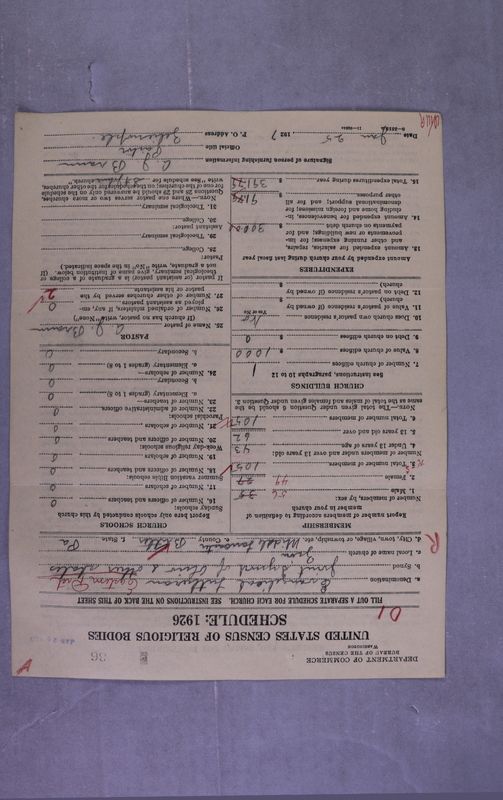 DEPARTMENT OF COMMERCE
BUREAU OF THE CENSUS
WASHINGTON
36
A
UNITED STATES CENSUS OF RELIGIOUS BODIES
SCHEDULE: 1926
D1
FILL OUT A SEPARATE SCHEDULE FOR EACH CHURCH. SEE INSTRUCTIONS ON THE BACK OF THIS SHEET
a. Denomination Evangelical Lutheran Eastern Dist
b. Synod Joint Synod of Ohio & other states
c. Local name of church
d. City, town, village, or township, etc. e. County Butler f. State Pa
R
MEMBERSHIP
Report number of members according to definition of member in your church
Number of members, by sex:
1. Male 56
2. Female 49
3. Total number of members 105
Number of members under and over 13 years old:
4. Under 13 years of age 43
5. 13 years old and over 62
6. Total number of members 105
NOTE.—The total given under Question 6 should be the same as the total of males and females given under Question 3.
CHURCH BUILDINGS
See instructions, paragraphs 10 to 12
7. Number of church edifices 1
8. Value of church edifices $ 1000
9. Debt on church edifices $ 0
10. Does church own pastor's residence? No
Yes or No
11. Value of pastor's residence (if owned by church) $
12. Debt on pastor's residence (if owned by church) $
EXPENDITURES
Amount expended by your church during last fiscal year
13. Amount expended for salaries, repairs, and other running expenses; for improvements or new building; and for payments on church debt $
14. Amount expended for benevolences, including home and foreign missions; for denominational support; and for all other purposes $
16. Total expenditures during year $
CHURCH SCHOOLS
Report here only schools conducted by this church
Sunday schools:
16. Number of officers and teachers 0
17. Number of scholars 0
Summer vacation Bible schools:
18. Number of officers and teachers 0
19. Number of scholars 0
Week-day religious schools:
20. Number of officers and teachers 0
21. Number of scholars 0
Parochial schools:
22. Number of administrative officers 0
23. Number of teachers—
a. Elementary (grades 1 to 8) 0
b. Secondary 0
24. Number of scholars—
a. Elementary (grades 1 to 8) 0
b. Secondary 0
PASTOR
25. Name of pastor
(If church has no pastor, write "None")
26. Number of ordained ministers, if any, employed as assistant pastors 0
27. Number of other churches served by the pastor or his assistants 2
If pastor (or assistant pastor) is a graduate of a college or theological seminary, give name of institution below. (If not a graduate, write "No" in the space indicated.)
Pastor:
28. College
29. Theological seminary
Assistant pastor:
30. College
31. Theological seminary
NOTE.—Where one pastor serves two or more churches, Question 25 and 26 should be answered only on the schedule for one of the churches; on the schedules for the other churches, write "See schedule for church."
Signature of person furnishing information
Official title Pastor
P. O. Address Zelienople
Date Jan 25, 1927